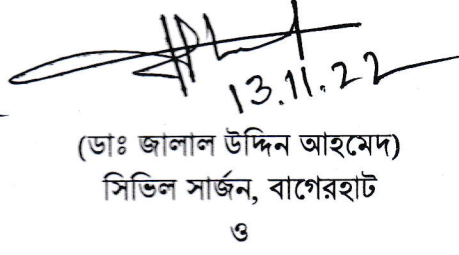 13.11.22
(ডাঃ জালাল উদ্দিন আহমেদ)
সিভিল সার্জন, বাগেরহাট
ও